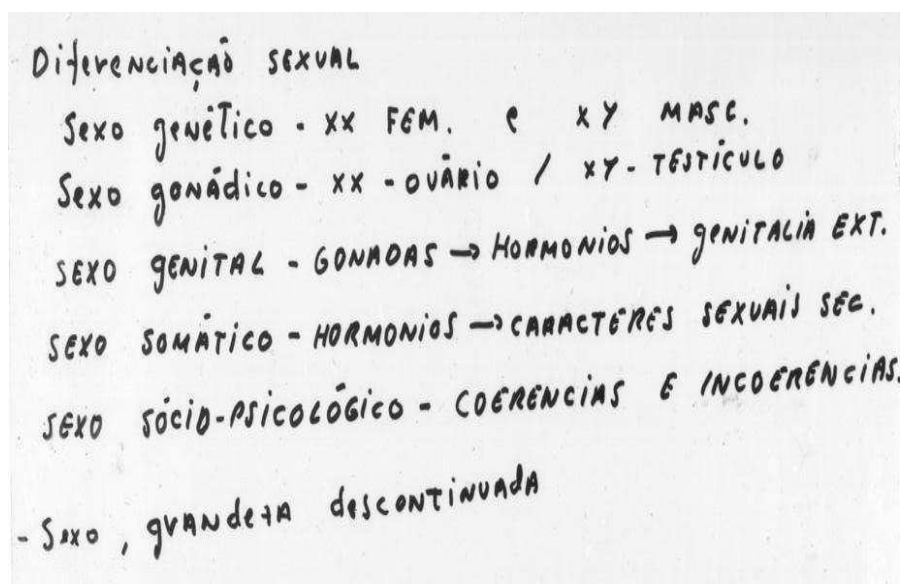 Diferenciação sexual
Sexo genético - XX FEM. e XY MASC.
Sexo gonádico - XX - ovário / XY - TESTÍCULO
SEXO GENITAL - GONADAS → HORMONIOS → GENITALIA EXT.
SEXO SOMÁTICO - HORMONIOS → CARACTERES SEXUAIS SEC.
SEXO SÓCIO-PSICOLÓGICO - COERENCIAS E INCOERENCIAS.
- Sexo, grandeza descontinuada